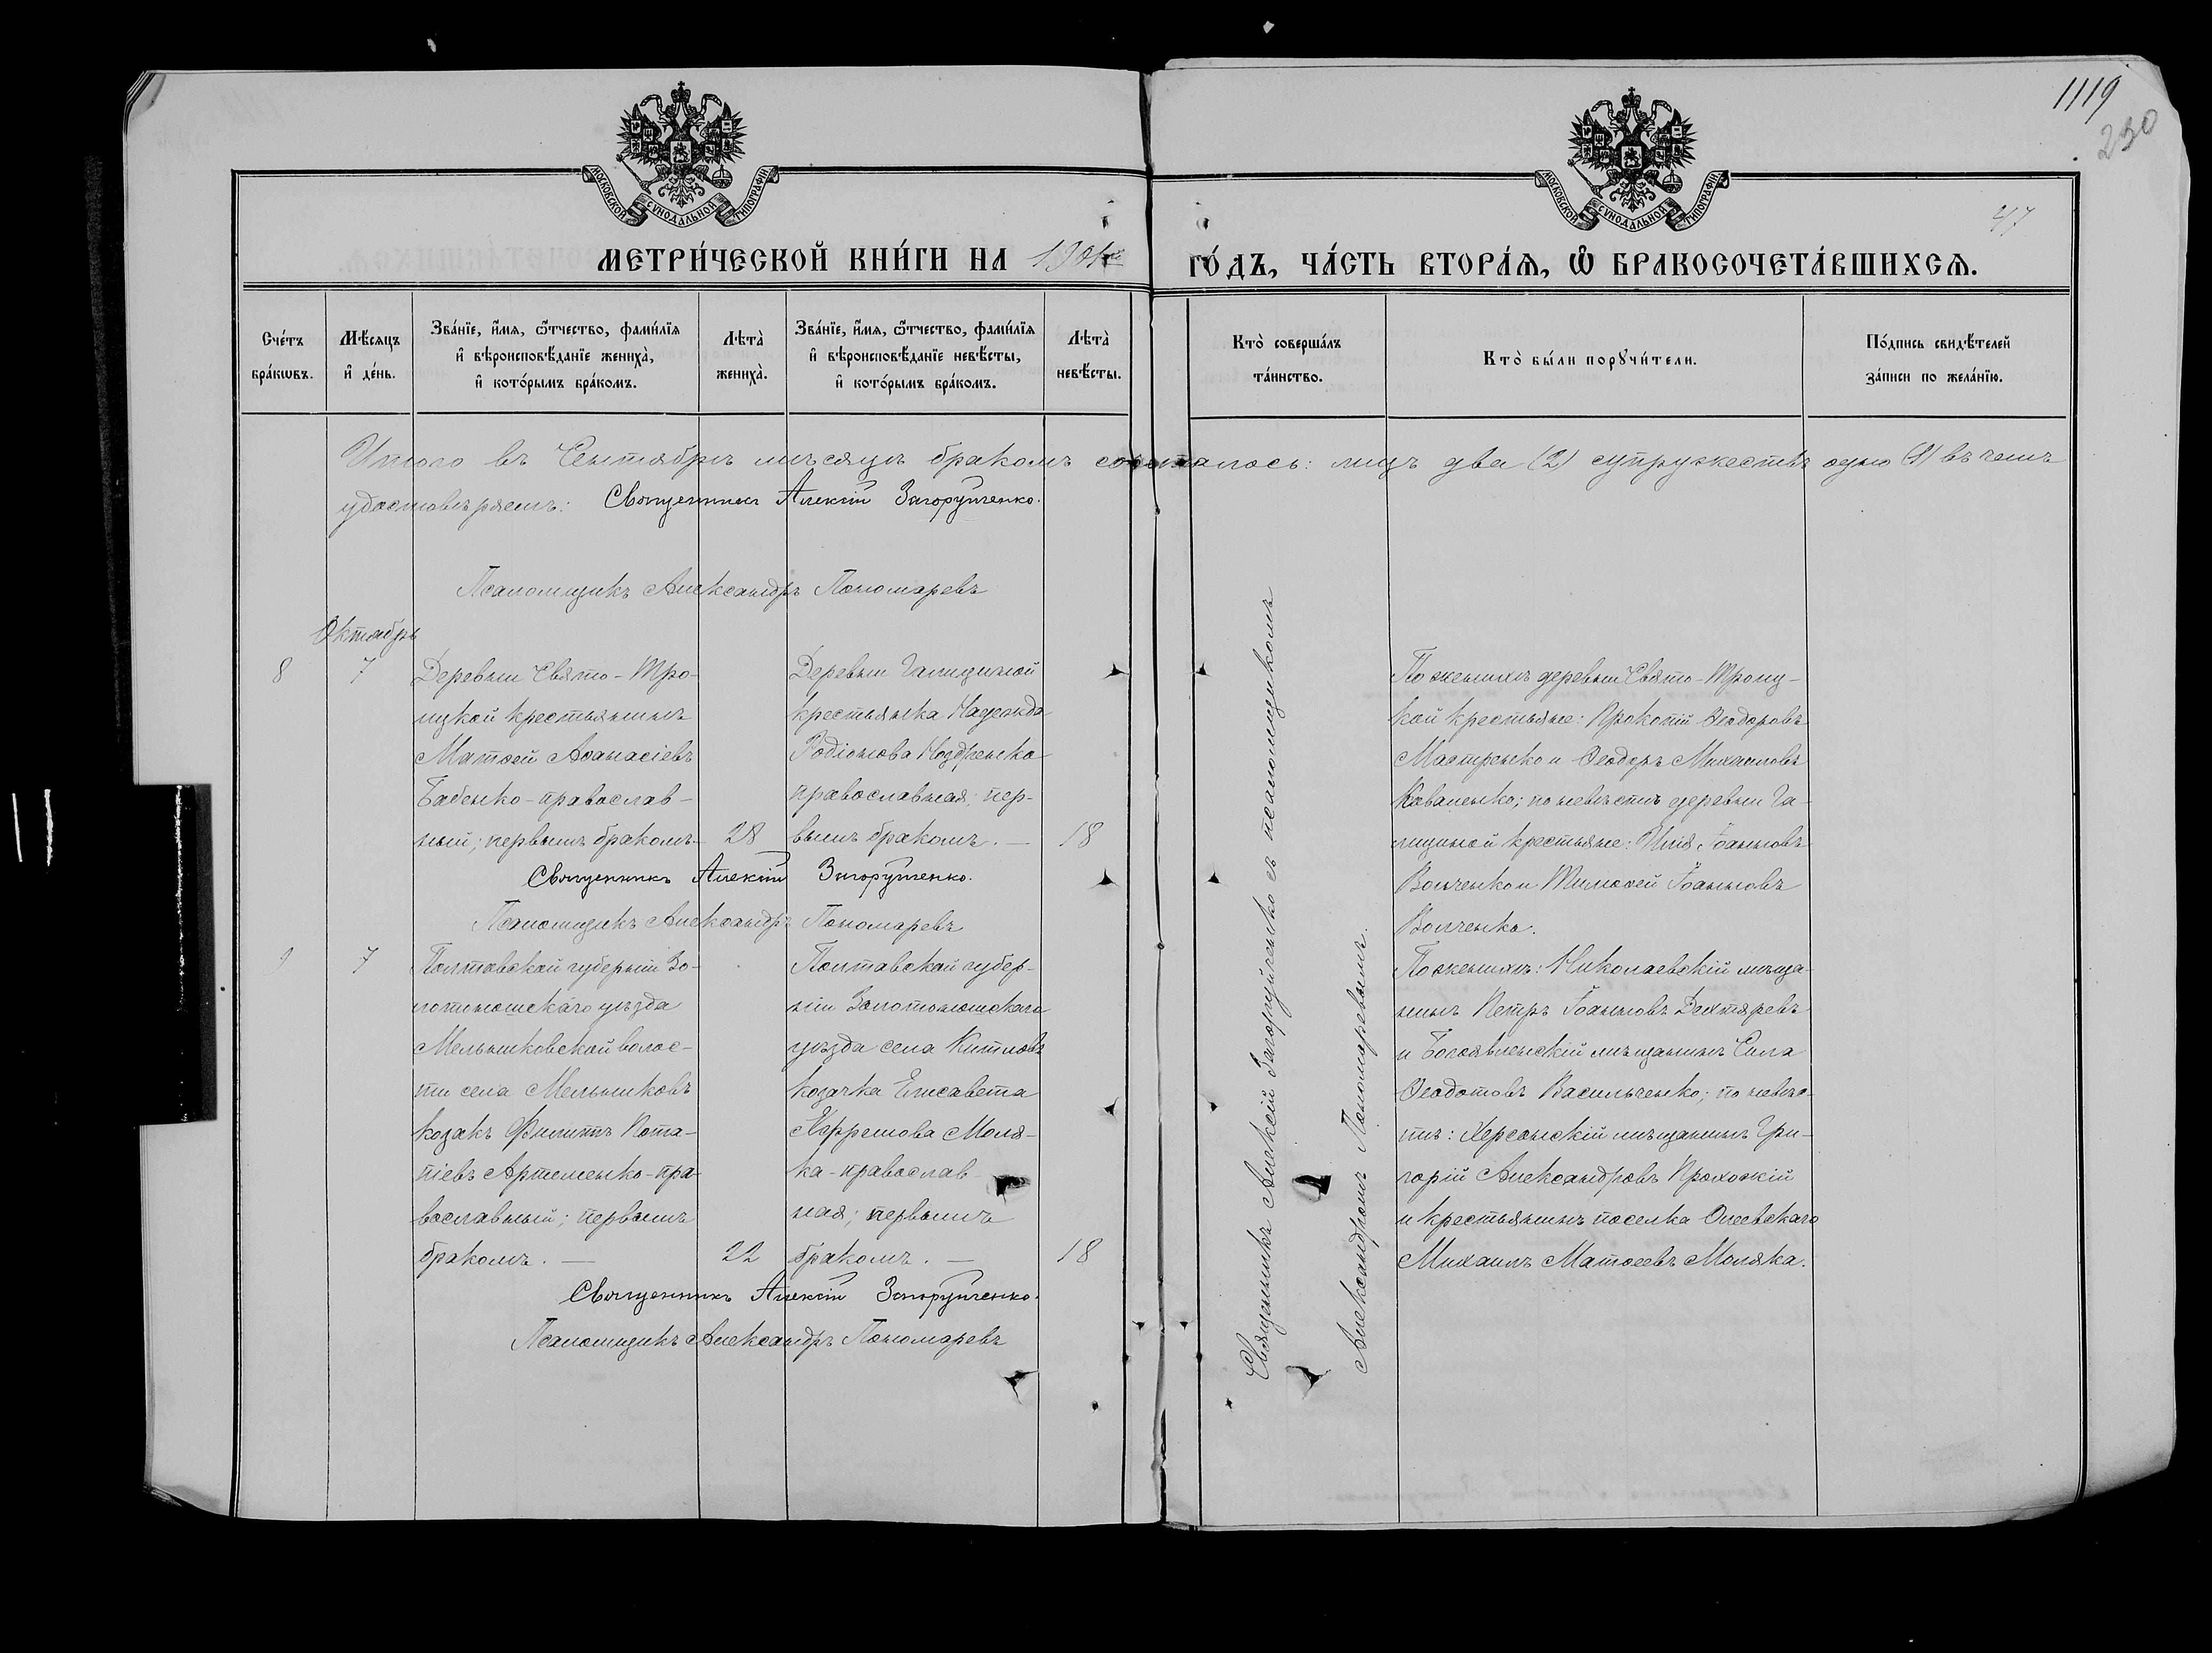 1119
230
47
МОСКОВСКОЙ СУНОДАЛЬНОЙ ТИПОГРАФИИ
МОСКОВСКОЙ СУНОДАЛЬНОЙ ТИПОГРАФИИ
МЕТРИ́ЧЕСКОЙ КНИ́ГИ НА 1901 го́дъ, ча́сть втора́ѧ, Ѡ бракосочета́вшихсѧ.
Сче́тъ
бра́кѡвъ.
Мѣ́сѧцъ
и҆ де́нь.
Зва́нїе, и҆́мѧ, ѻ҆́тчество, фами́лїѧ
и҆ вѣроисповѣ́данїе жениха̀,
и҆ кото́рымъ бра́комъ.
Лѣта̀
жениха̀.
Зва́нїе, и҆́мѧ, ѻ҆́тчество, фами́лїѧ
и҆ вѣроисповѣ́данїе невѣ́сты,
и҆ кото́рымъ бра́комъ.
Лѣта̀
невѣ́сты.
Кто̀ соверша́лъ
та́инство.
Кто̀ бы́ли порꙋчи́тели.
По́дпись свидѣ́телей
за́писи по жела́нїю.
Итого въ Сентябрѣ мѣсяцѣ бракомъ сочеталось: лицъ два (2) супружествъ одно (1) въ чемъ
удостовѣряемъ: Священникъ Алексій Загоруйченко.
Псаломщикъ Александръ Пономаревъ
Октябрь
8
7
Деревни Свято-Тро-
ицкой крестьянинъ
Матѳей Аѳанасіевъ
Бабенко-православ-
ный; первымъ бракомъ-
28
Деревни Галициной
крестьянка Надежда
Родіонова Ноздренко
православная; пер-
вымъ бракомъ. —
18
По женихѣ деревни Свято-Троиц-
кой крестьяне: Прокопій Ѳеодоровъ
Мастренко и Ѳеодоръ Михаиловъ
Коваленко; по невѣстѣ деревни Га-
лициной крестьяне: Илія Іоанновъ
Волченко и Тимоѳей Іоанновъ
Волченко.
Священникъ Алексій Загоруйченко.
Псаломщикъ Александръ Пономаревъ
9
7
Полтавской губерніи Зо-
лотоношскаго уѣзда
Мельниковской волос-
ти села Мельниковъ
козакъ Филиппъ Пота-
піевъ Артеменко-пра-
вославный; первымъ
бракомъ. —
22
Полтавской губер-
ніи Золотоношскаго
уѣзда села Китловъ
козачка Елисавета
Ефремова Моля-
ка-православ-
ная; первымъ
бракомъ. —
18
По женихѣ: Николаевскій мѣща-
нинъ Петръ Іоанновъ Дехтяревъ
и Богоявленскій мѣщанинъ Сила
Ѳеодотовъ Васильченко; по невѣс-
тѣ: Херсонскій мѣщанинъ Гри-
горій Александровъ Прохожій
и крестьянинъ поселка Олеевскаго
Михаилъ Матѳеевъ Моляка.
Священникъ Алексій Загоруйченко.
Псаломщикъ Александръ Пономаревъ
Священникъ Алексій Загоруйченко съ псаломщикомъ
Александромъ Пономаревымъ.